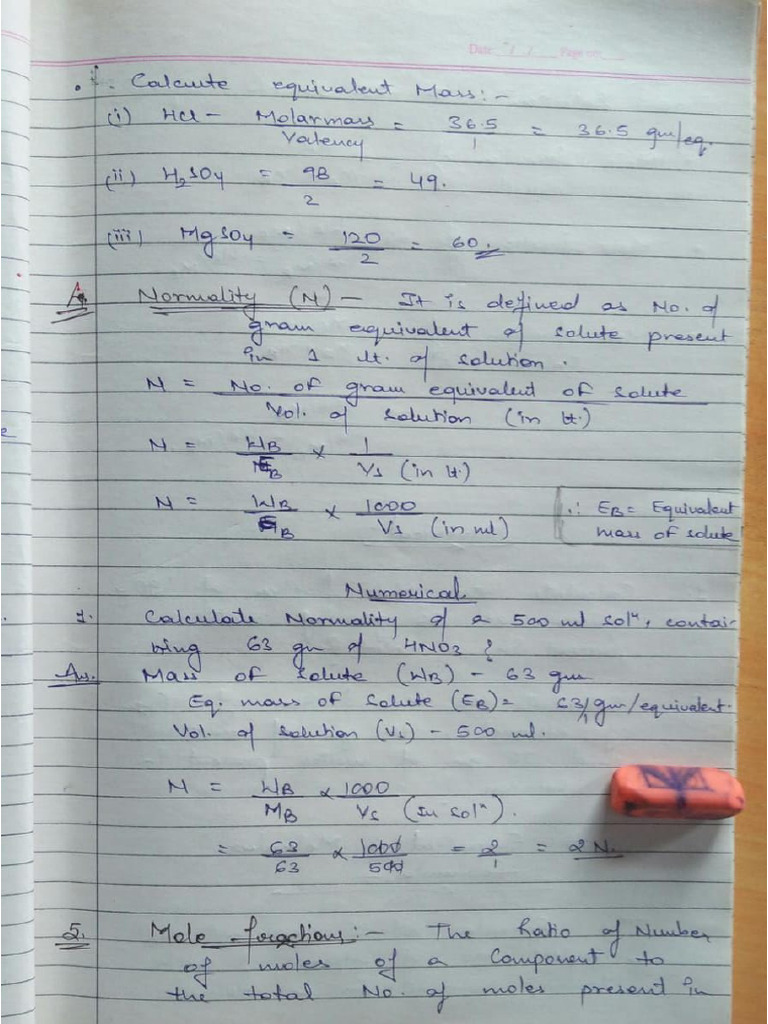 Date / / Page no.
∴ Calcute equivalent Mass:-
(i) HCl - Molarmass / Valency = 36.5 / 1 = 36.5 gm/eq.
(ii) H2SO4 = 98 / 2 = 49.
(iii) MgSO4 = 120 / 2 = 60.
Normality (N) - It is defined as No. of
gram equivalent of solute present
in 1 lt. of solution.
N = No. of gram equivalent of solute / Vol. of solution (in lt.)
N = WB / EB × 1 / V1 (in lt.)
N = WB / EB × 1000 / V1 (in ml)
∴ EB = Equivalent
mass of solute
Numerical
1. Calculate Normality of a 500 ml solⁿ, contai-
ning 63 gm of HNO3 ?
Ans. Mass of solute (WB) - 63 gm
Eq. mass of solute (EB) = 63/1 gm/equivalent.
Vol. of solution (V1) - 500 ml.
N = WB / MB × 1000 / V1 (in solⁿ).
= 63 / 63 × 1000 / 500 = 2 / 1 = 2 N.
5. Mole fractions:- The Ratio of Number
of moles of a component to
the total No. of moles present in